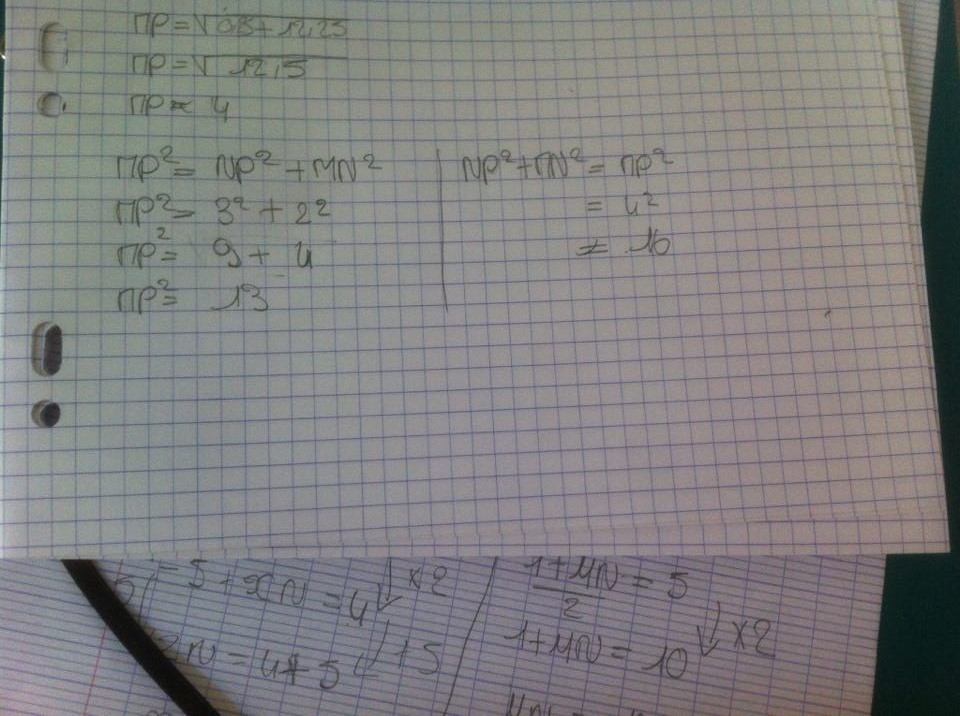 MP = √0,3 + 12,25
MP = √12,5
MP ≈ 4
MP² = NP² + MN²
MP² = 3² + 2²
MP² = 9 + 4
MP² = 13
NP² + MN² = MP²
= 4²
≠ 16
= 5 + xN = 4 ↓ ×2
N = 4 + 5 ↓ + 5
1 + yN / 2 = 5
1 + yN = 10 ↓ ×2